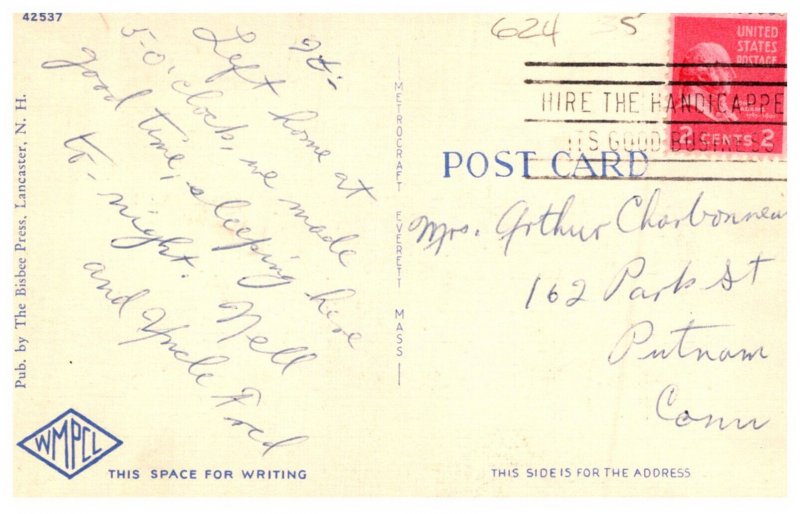 42537
624
5
UNITED
STATES
POSTAGE
ADAMS
2 CENTS 2
HIRE THE HANDICAPPE
ITS GOOD BUSINESS
POST CARD
Pub. by The Bisbee Press, Lancaster, N. H.
Left home at
5-O'clock, we made
good time, sleeping here
to-night. Nell
and Uncle Fred
METROCRAFT EVERETT MASS
Mrs. Arthur Charbonneau
162 Park St
Putnam
Conn
WMPCL
THIS SPACE FOR WRITING
THIS SIDE IS FOR THE ADDRESS